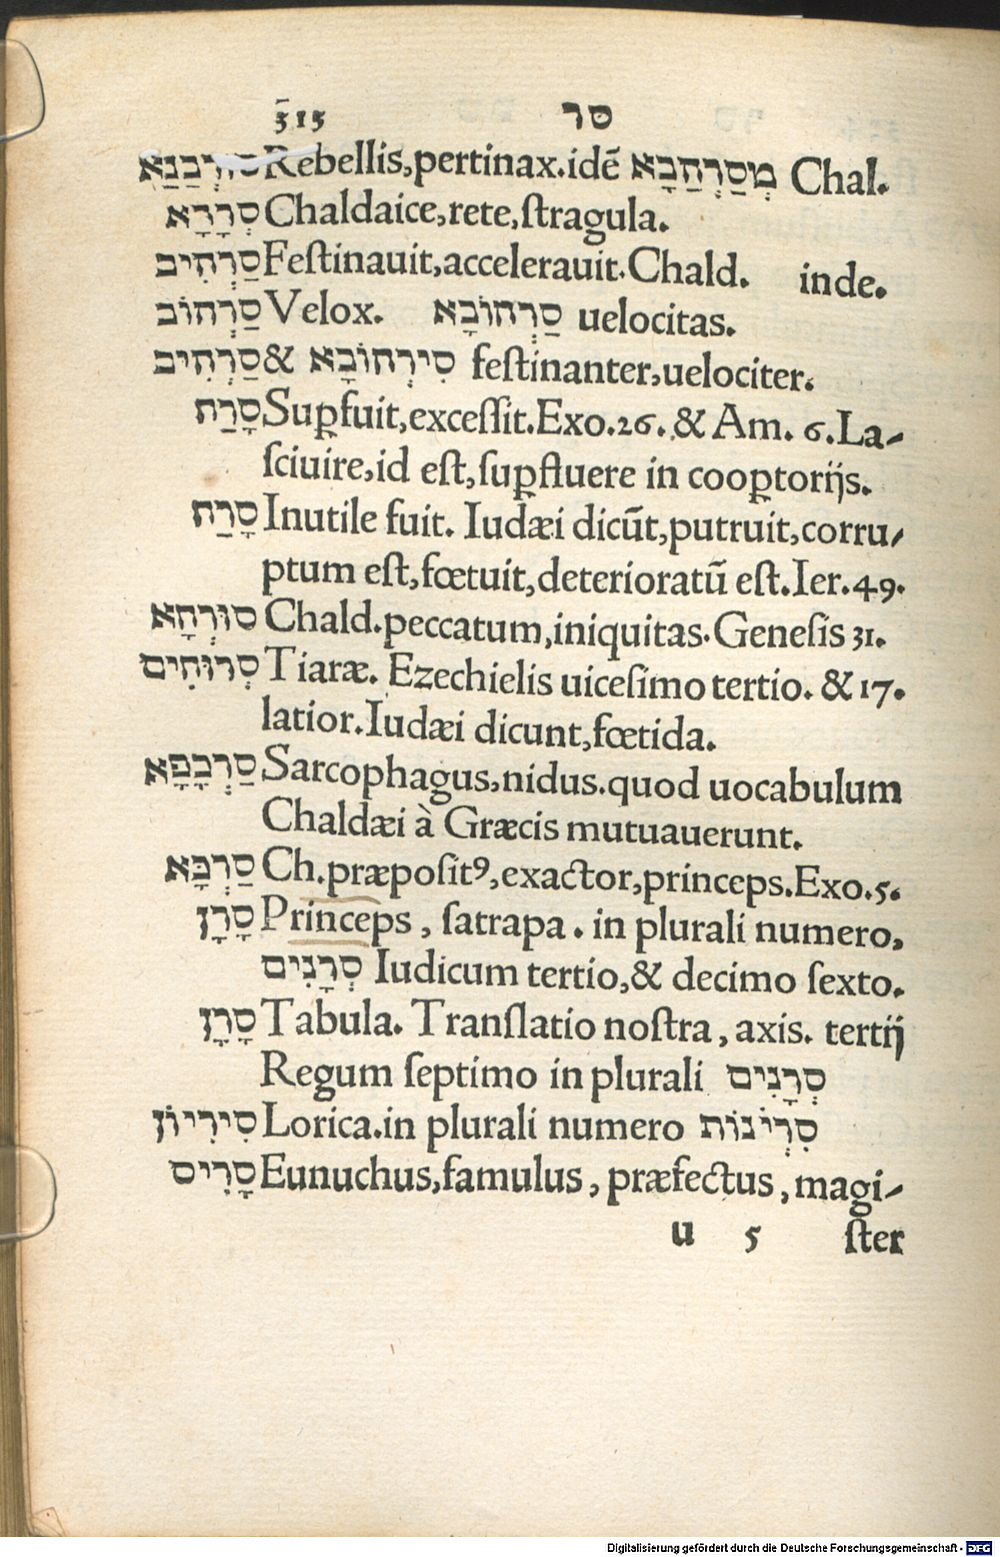 313 סר
סַרְבַנַא Rebellis,pertinax.idē מְסַרְחַבָא Chal.
סְרָרָא Chaldaice,rete,ſtragula.
סַרְחִיב Feſtinauit,accelerauit.Chald. inde.
סַרְחוֹב Velox. סַרְחוֹבָא uelocitas.
סַרְחִיב & סִירְחוֹבָא feſtinanter,uelociter.
סָרַח Suꝑfuit,exceſſit.Exo.26.& Am. 6.La-
ſciuire,id eſt,ſuꝑfluere in cooꝑtorijs.
סָרַח Inutile fuit. Iudæi dicūt,putruit,corru-
ptum eſt,fœtuit,deterioratū eſt.Ier.49.
סוּרְחָא Chald.peccatum,iniquitas.Geneſis 31.
סְרוּחִים Tiaræ. Ezechielis uiceſimo tertio. & 17.
latior.Iudæi dicunt,fœtida.
סַרְכָפָא Sarcophagus,nidus.quod uocabulum
Chaldæi à Græcis mutuauerunt.
סַרְכָּא Ch.præpoſitꝰ,exactor,princeps.Exo.5.
סָרָן Princeps, ſatrapa. in plurali numero,
סְרָנִים Iudicum tertio,& decimo ſexto.
סָרָן Tabula. Tranſlatio noſtra, axis. tertij
Regum ſeptimo in plurali סְרָנִים
סִירִיוֹן Lorica.in plurali numero סִרְיֹנוֹת
סָרִיס Eunuchus,famulus, præfectus, magi-
u 5 ſter
Digitalisierung gefördert durch die Deutsche Forschungsgemeinschaft - DFG